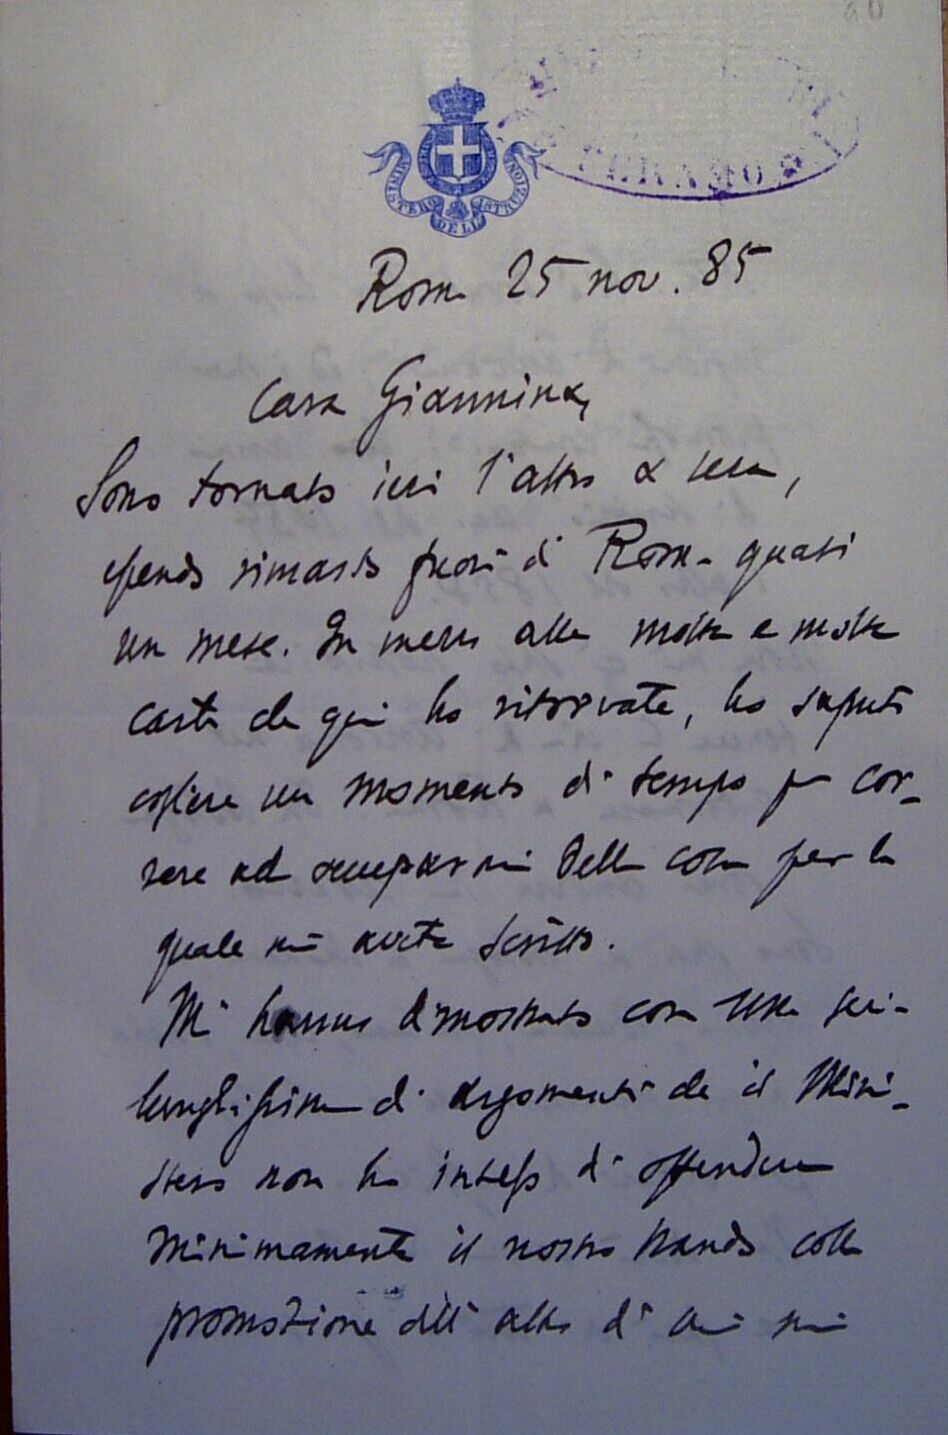 MINISTERO DELL' ISTRUZION
TERAMO
Roma 25 nov. 85
Cara Giannina,
Sono tornato ieri l'altro a sera,
essendo rimasto fuori di Roma quasi
un mese. In mezzo alle molte e molte
carte che qui ho ritrovate, ho saputo
cogliere un momento di tempo per cor-
rere ad occuparmi della cosa per la
quale mi avete scritto.
Mi hanno dimostrato con una
di argomenti che il Mini-
stero non ha inteso di offendere
minimamente il nostro colla
promozione dell' altro di cui mi